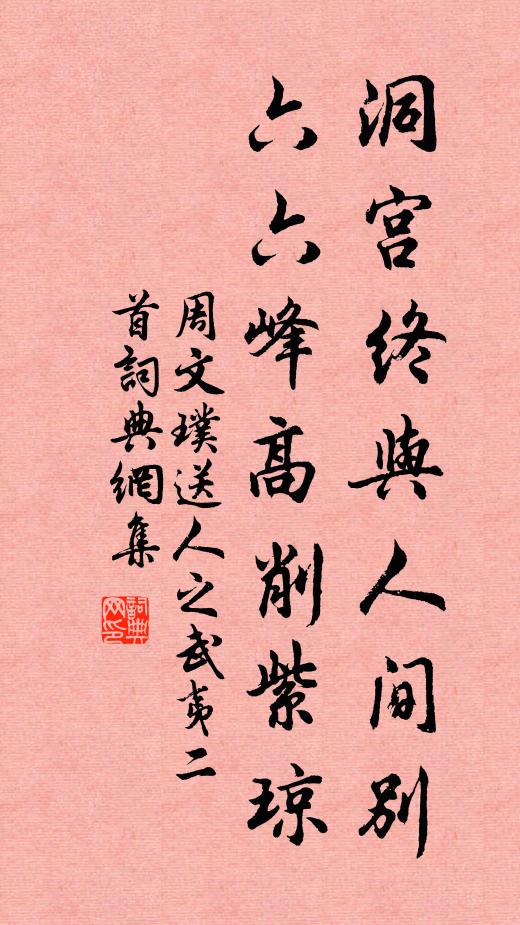 洞宮終與人間別
六六峰高削紫琼
周文璞送人之武夷二
首詞典網集
詞典網印